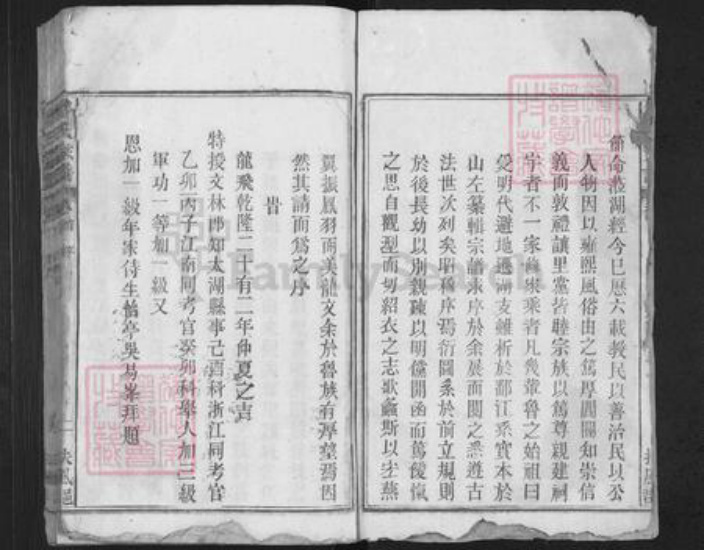 命蒞湖經今已歷六載教民以善治民以公
人物因以雍熙風俗由之篤厚閭閻知崇信
義而敦禮讓里黨皆睦宗族以篤尊親建祠
宇者不一家修家乘者凡幾輩魯之始祖曰
受明代避地遷湖支雖析於鄱江系實本於
山左纂輯宗譜求序於余展而閱之悉遵古
法世次列矣昭穆序焉衍圖系於前立規則
於後長幼以別親疎以明儻開函而篤僾愾
之思自觀型而切紹衣之志歌螽斯以燕
翼振鳳羽而美龍文余於魯族有厚望焉因
然其請而為之序
旹
龍飛乾隆二十有二年仲夏之吉
特授文林郎知太湖縣事己酉科浙江同考官
乙卯丙子江南同考官癸卯科舉人加三級
軍功一等加一級又
恩加一級年家侍生亭吳易峯拜題
扶風邑
FamilySearch